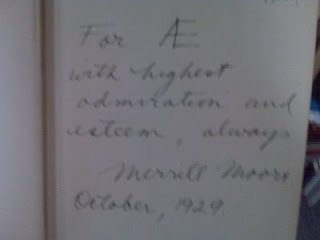 For Æ
with highest
admiration and
esteem, always
Merrill Moore
October, 1929